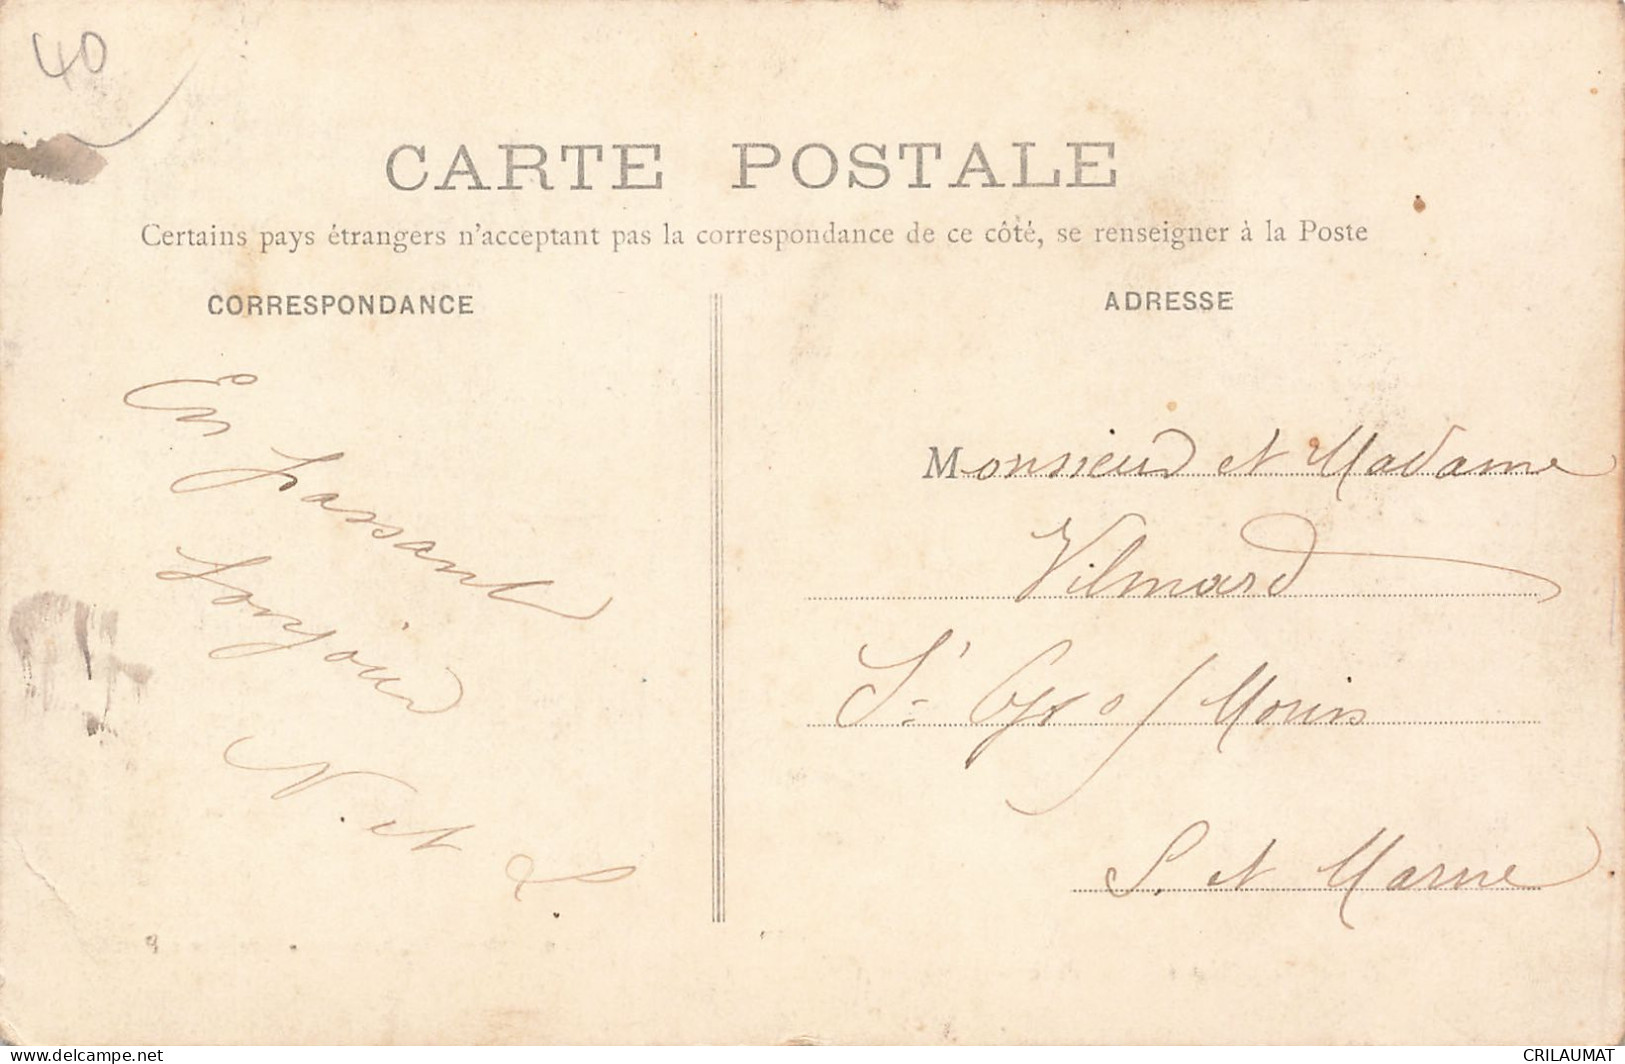 40
CARTE POSTALE
Certains pays étrangers n'acceptant pas la correspondance de ce côté, se renseigner à la Poste
CORRESPONDANCE
En passant
bonjour
V. et L.
ADRESSE
Monsieur et Madame
Vilmard
St Cyr s/ Morin
S. et Marne
www.delcampe.net
CRILAUMAT